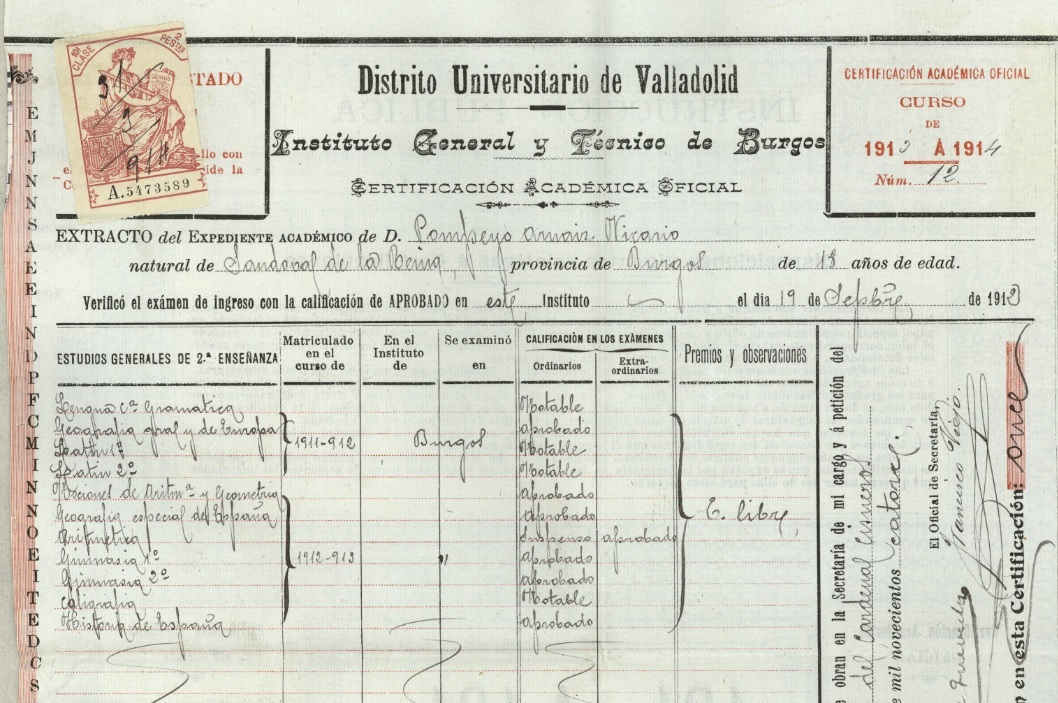 10ª CLASE
2 PESETAS
31/3/914
A.5473589
TADO
llo con
ide la
Distrito Universitario de Valladolid
Instituto General y Técnico de Burgos
CERTIFICACIÓN ACADÉMICA OFICIAL
CERTIFICACIÓN ACADÉMICA OFICIAL
CURSO
DE
1913 Á 1914
Núm. 12.
EXTRACTO del EXPEDIENTE ACADÉMICO de D. Pompeyo Arnaiz Vicario
natural de Sandoval de la Reina, provincia de Burgos de 18 años de edad.
Verificó el exámen de ingreso con la calificación de APROBADO en este Instituto el dia 19 de Sepbre de 1912
ESTUDIOS GENERALES DE 2.ª ENSEÑANZA
Matriculado en el curso de
En el Instituto de
Se examinó en
CALIFICACIÓN EN LOS EXÁMENES
Ordinarios
Extraordinarios
Premios y observaciones
Lengua cª Gramatica Notable
Geografia gral y de Europa aprobado
Latin 1º 1911-912 Burgos Notable
Latin 2º Notable
Nociones de Aritmª y Geometria aprobado
Geografia especial de España aprobado E. libre,
Aritmetica suspenso aprobado
Gimnasia 1º 1912-913 " aprobado
Gimnasia 2º aprobado
Caligrafia Notable
Historia de España aprobado
E
M
J
N
N
S
A
E
E
I
N
D
P
F
C
M
I
N
N
O
E
I
T
E
D
C
S
e obran en la Secretaría de mi cargo y á petición del
del Cardenal Cisneros
e mil novecientos catorce.
El Oficial de Secretaría,
Francisco Viejo.
n en esta Certificación: once